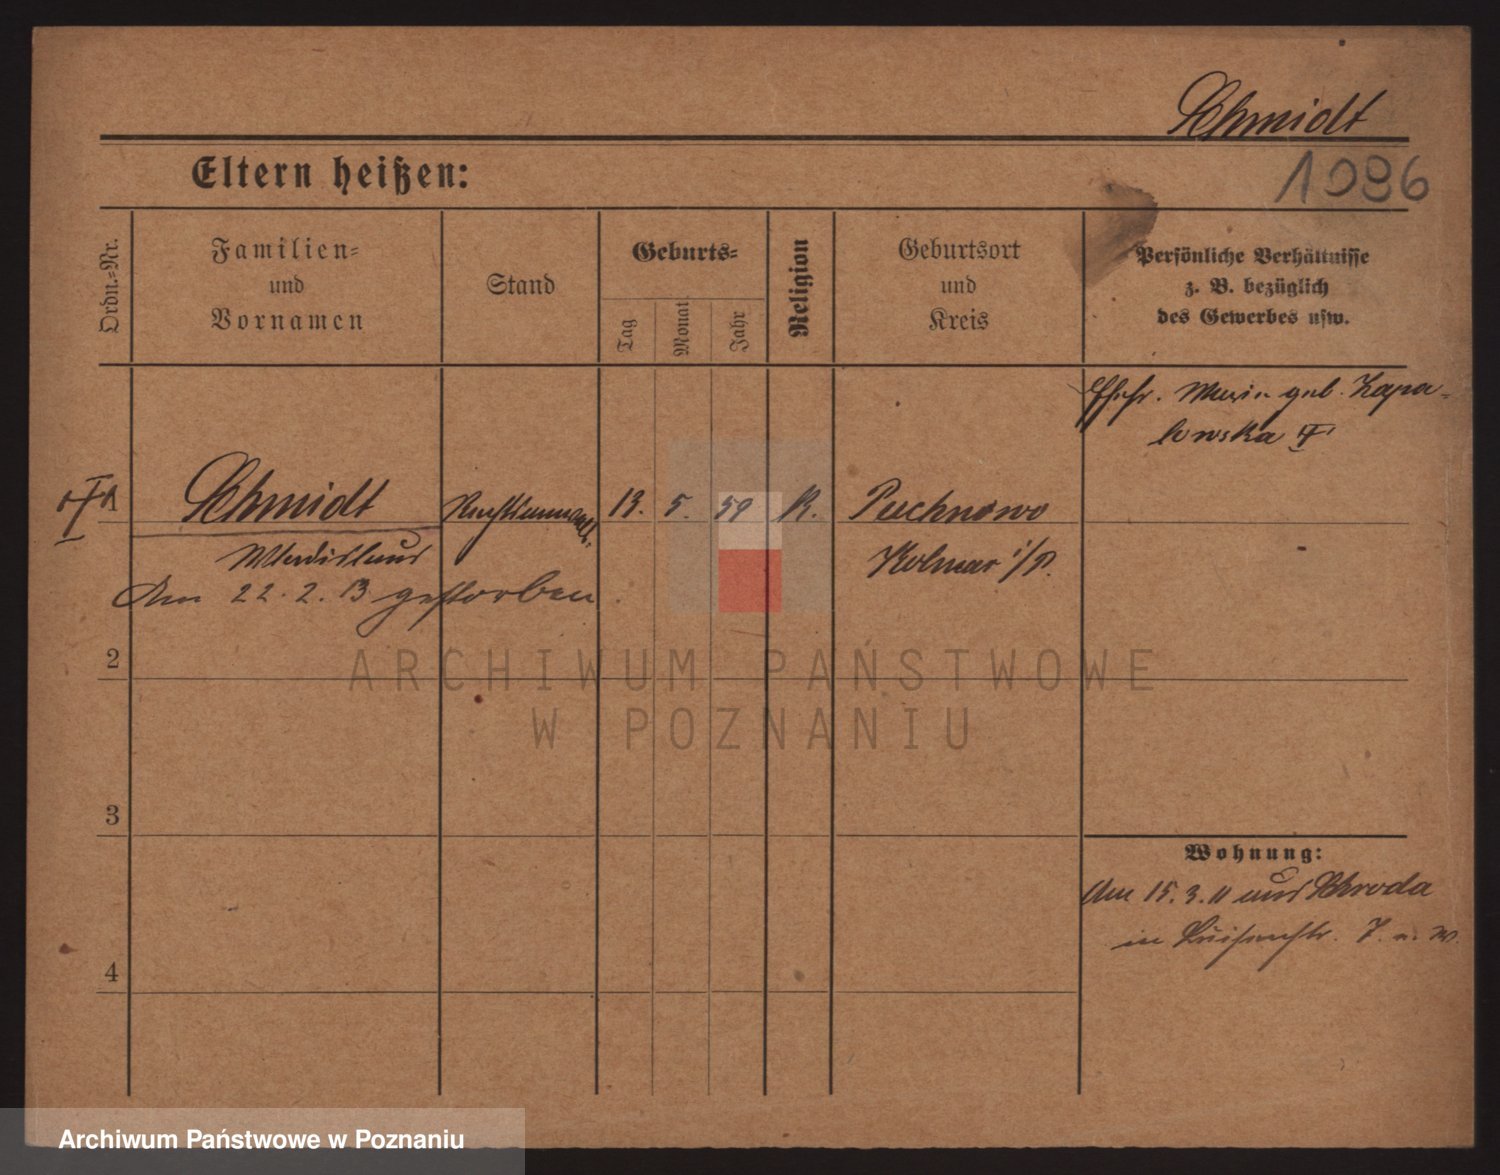 Schmidt
1096
Eltern heißen:
Ordn.-Nr.
Familien-
und
Vornamen
Stand
Geburts-
Tag
Monat
Jahr
Religion
Geburtsort
und
Kreis
Persönliche Verhältnisse
z. B. bezüglich
des Gewerbes usw.
Ehefr. Maria geb. Zapa-
lowska
1 Schmidt Rechtsanwalt 13. 5. 59 K. Puchnowo
Wladislaus Kolmar i/P.
Am 22.2.13 gestorben
2
3
4
Wohnung:
Am 15.3.11 aus Schroda
in Luisenstr. 7. a. W.
ARCHIWUM PAŃSTWOWE
W POZNANIU
Archiwum Państwowe w Poznaniu